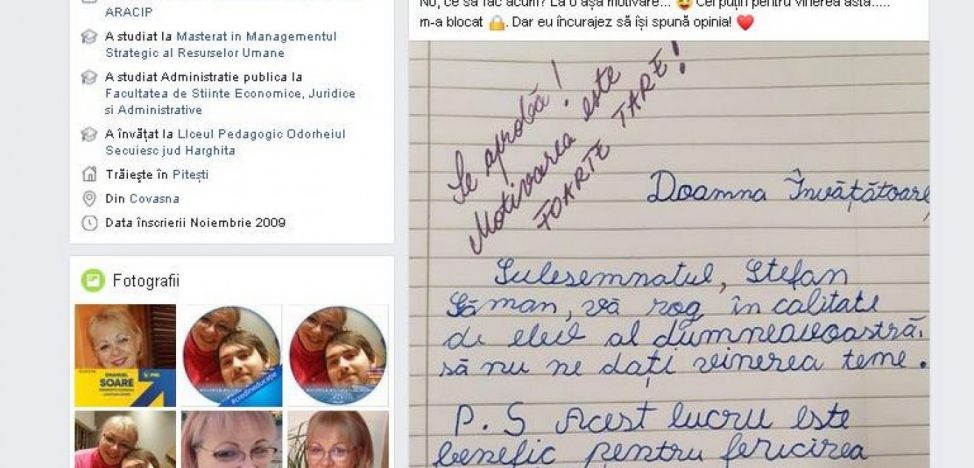 ARACIP
A studiat la Masterat in Managementul
Strategic al Resurselor Umane
A studiat Administratie publica la
Facultatea de Stiinte Economice, Juridice
si Administrative
A învățat la LIceul Pedagogic Odorheiul
Secuiesc jud Harghita
Trăiește în Pitești
Din Covasna
Data înscrierii Noiembrie 2009
Fotografii
EMANUEL
SOARE
PNL
Nu, ce să fac acum? La o așa motivare... 🤩 Cel puțin pentru vinerea asta.....
m-a blocat 🔒. Dar eu încurajez să își spună opinia! ❤️
Se aprobă!
Motivarea este
FOARTE TARE!
Doamna Învățătoare,
Subsemnatul, Ștefan
Săman, vă rog în calitate
de elev al dumneavoastră,
să nu ne dați vinerea teme.
P.S Acest lucru este
benefic pentru fericirea